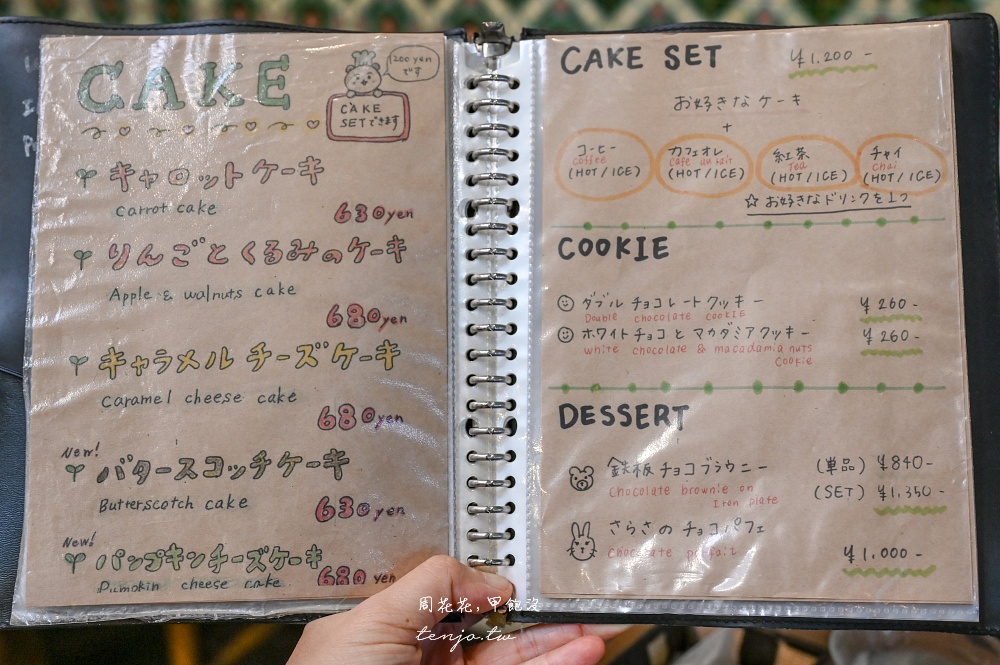 CAKE
1200 yen
です
CAKE
SETできます
キャロットケーキ
carrot cake
630yen
りんごとくるみのケーキ
Apple & walnuts cake
680yen
キャラメルチーズケーキ
caramel cheese cake
680yen
New!
バタースコッチケーキ
Butterscotch cake
630yen
New!
パンプキンチーズケーキ
Pumpkin cheese cake
680 yen
CAKE SET ¥1,200-
お好きなケーキ
+
コーヒー
coffee
(HOT/ICE)
カフェオレ
cafe au lait
(HOT/ICE)
紅茶
Tea
(HOT/ICE)
チャイ
chai
(HOT/ICE)
☆お好きなドリンクを1つ
COOKIE
ダブルチョコレートクッキー ¥260-
Double chocolate cookie
ホワイトチョコとマカダミアクッキー ¥260-
white chocolate & macadamia nuts
cookie
DESSERT
鉄板チョコブラウニー (単品) ¥840-
chocolate brownie on
Iron plate
(SET) ¥1,350-
さらさのチョコパフェ
chocolate parfait
¥1,000-
周花花，甲飽沒
tenjo.tw